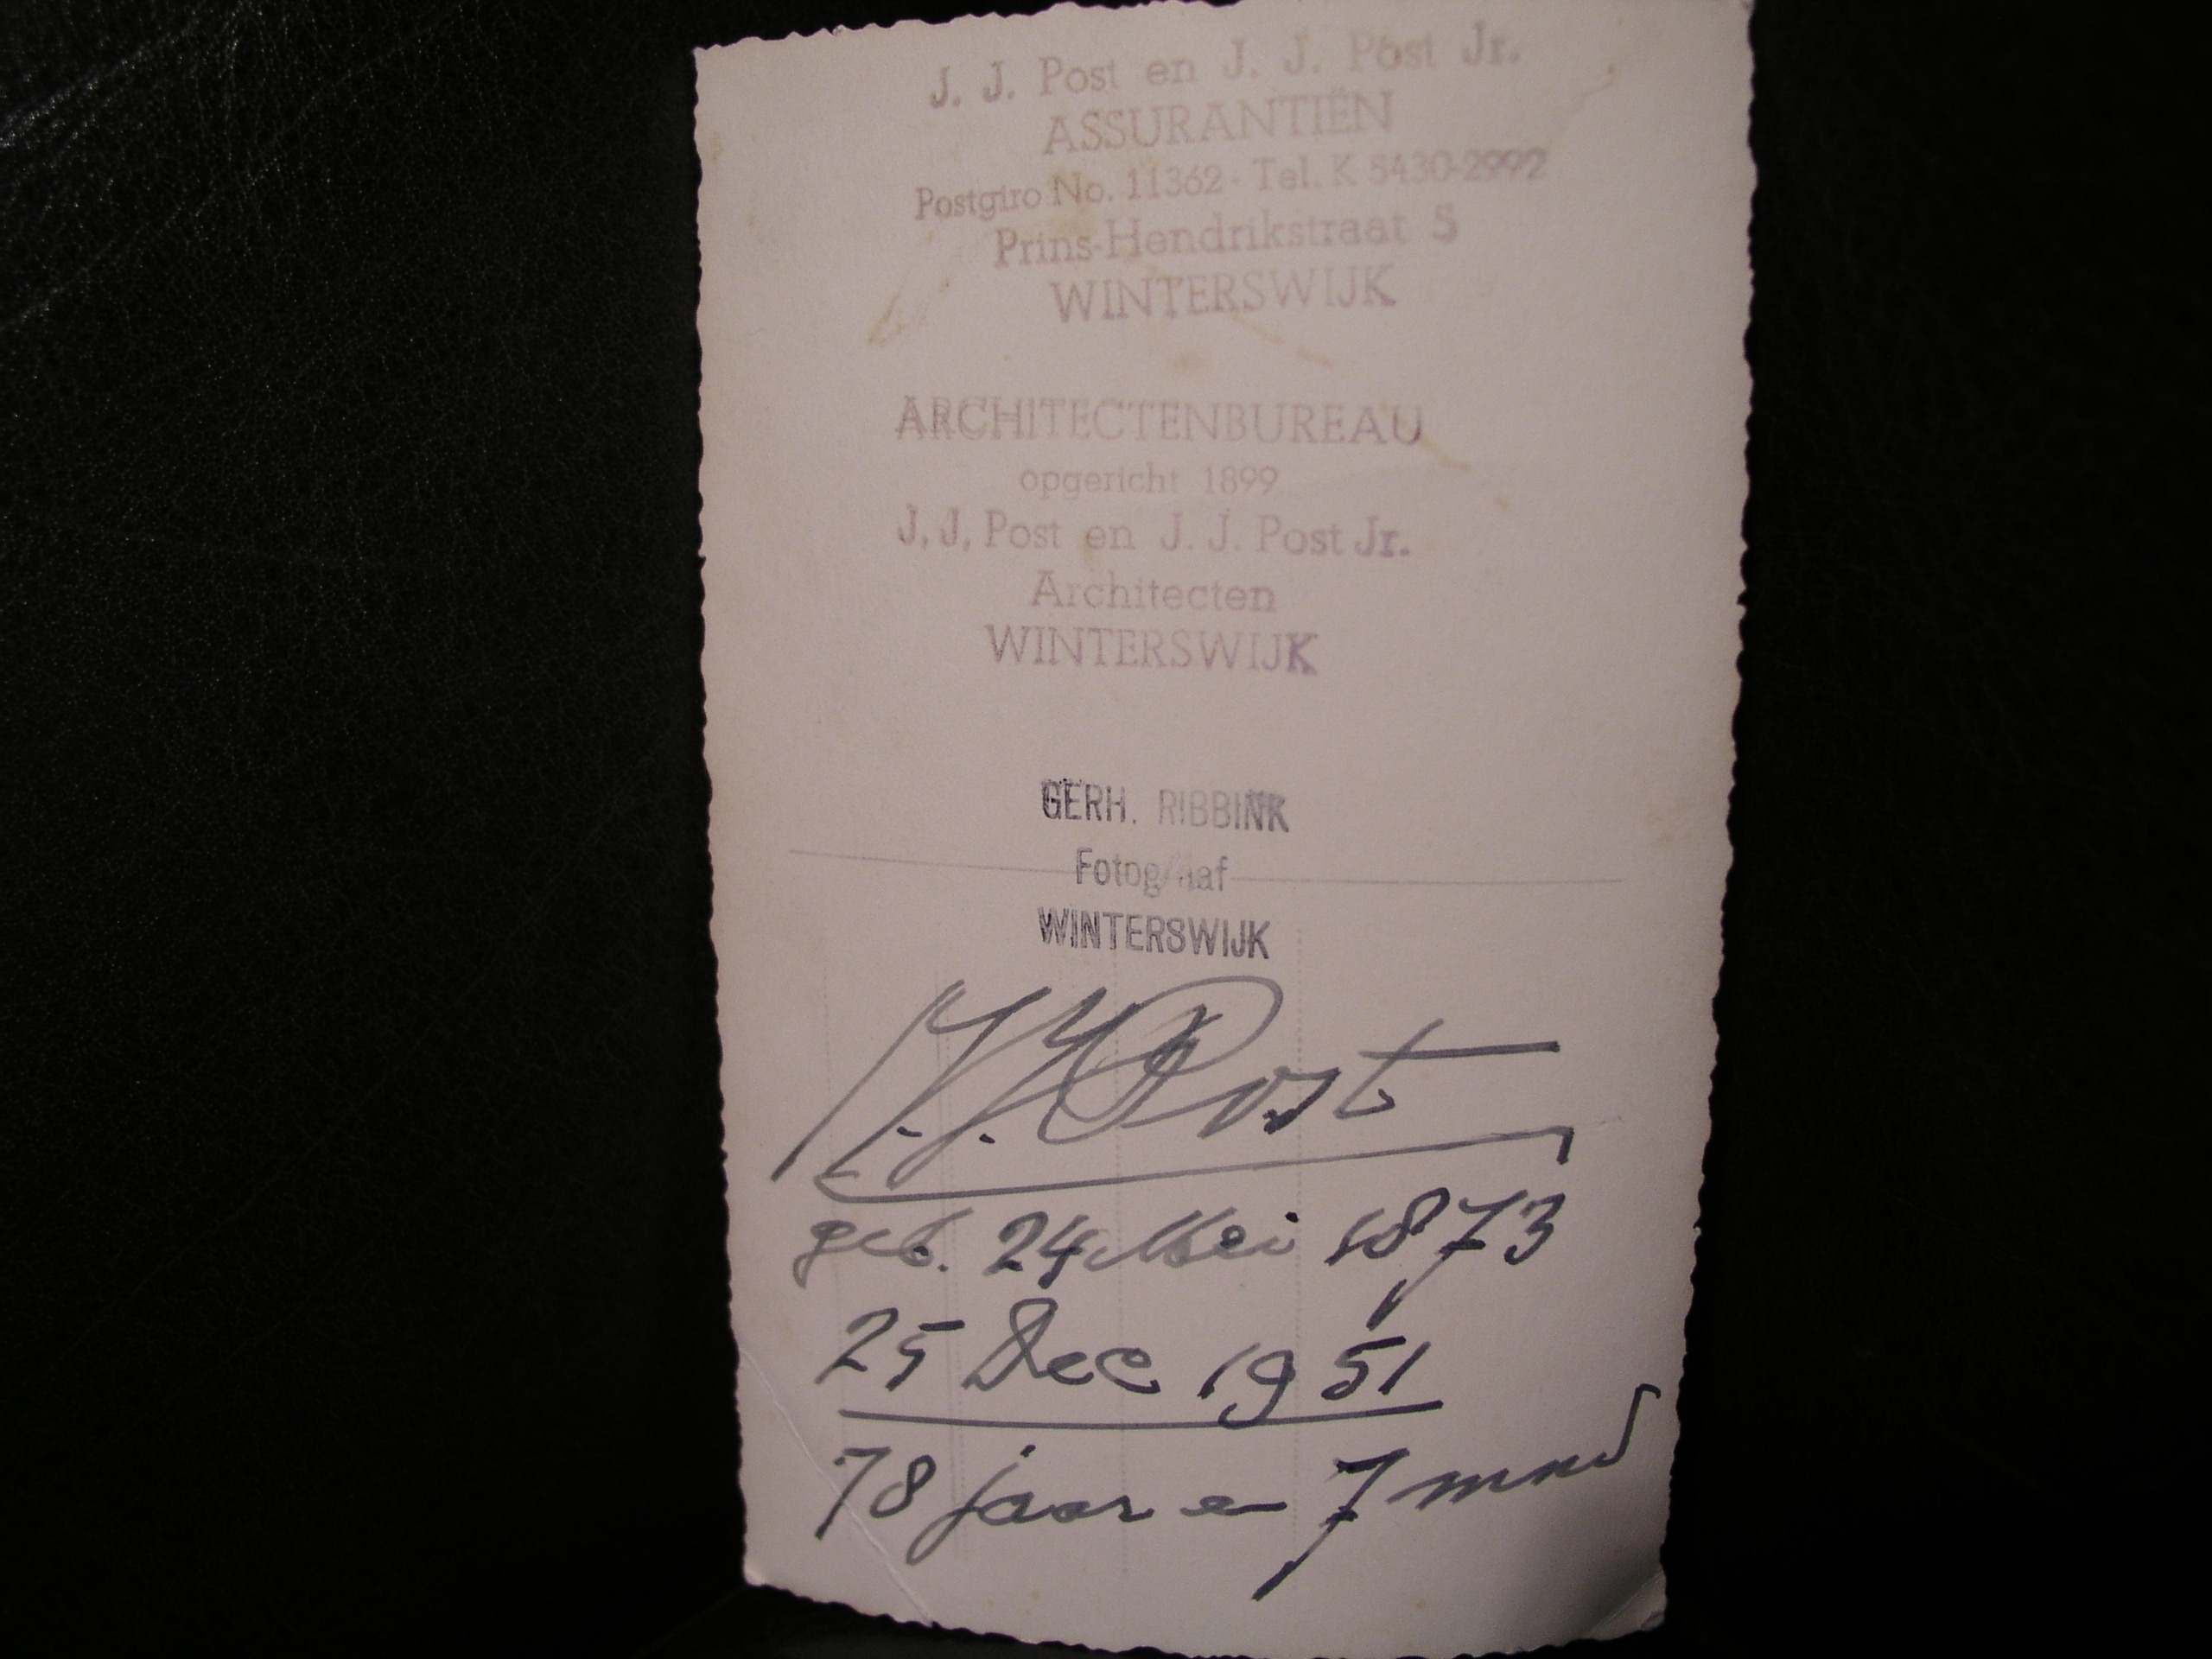 J. J. Post en J. J. Post Jr.
ASSURANTIËN
Postgiro No. 11362 - Tel. K 5430-2992
Prins-Hendrikstraat 5
WINTERSWIJK
ARCHITECTENBUREAU
opgericht 1899
J. J. Post en J. J. Post Jr.
Architecten
WINTERSWIJK
GERH. RIBBINK
Fotograaf
WINTERSWIJK
J. J. Post
geb. 24 Mei 1873
25 Dec 1951
78 jaar en 7 mnd